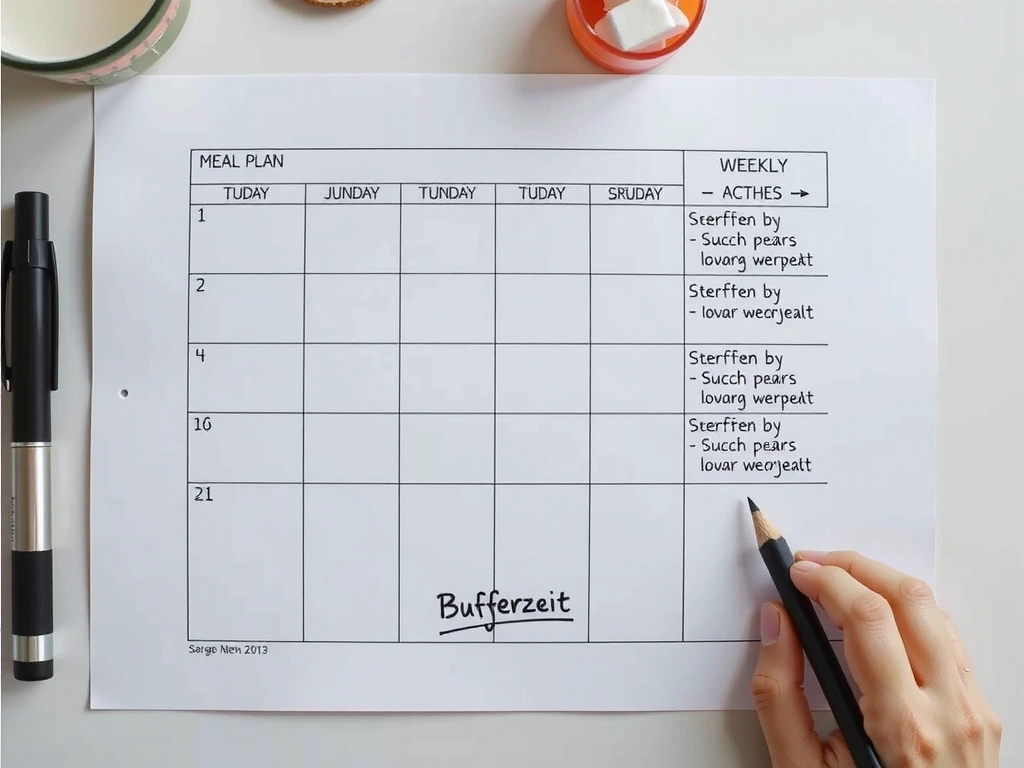 MEAL PLAN
WEEKLY
TUDAY JUNDAY TUNDAY TUDAY SRUDAY
– ACTHES →
1
Sterffen by
- Succh pears
lovarg werpekt
2
Sterffen by
- lovar weorjealt
4
Sterffen by
- Succh pears
lovarg werpekt
16
Sterffen by
- Succh pears
lovar weorjealt
21
Bufferzeit
2013